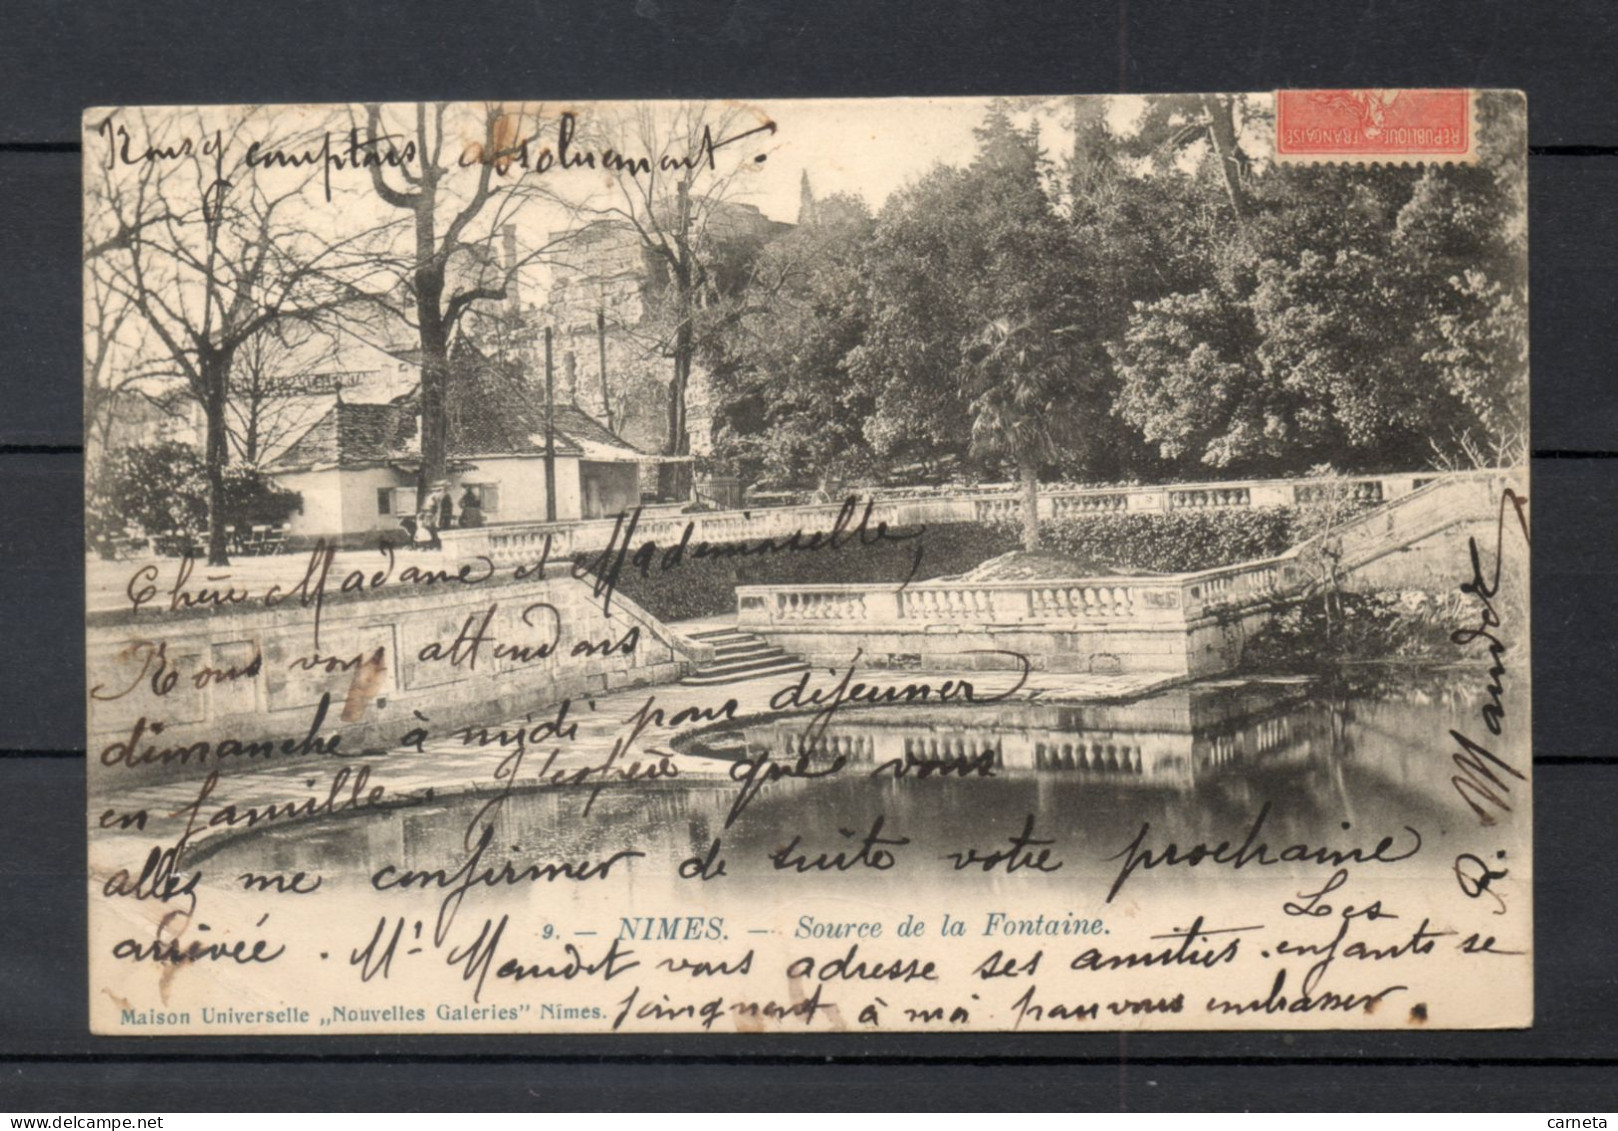 Nous y comptons absolument.
REPUBLIQUE FRANÇAISE
Chère Madame et Mademoiselle,
Nous vous attendons
dimanche à midi pour déjeuner
en famille. J'espère que vous
allez me confirmer de suite votre prochaine
arrivée. Mr Mandot vous adresse ses amitiés. Les enfants se
joingnent à moi pour vous embrasser.
R. Mandot
9. — NIMES. — Source de la Fontaine.
Maison Universelle „Nouvelles Galeries" Nîmes.
carneta